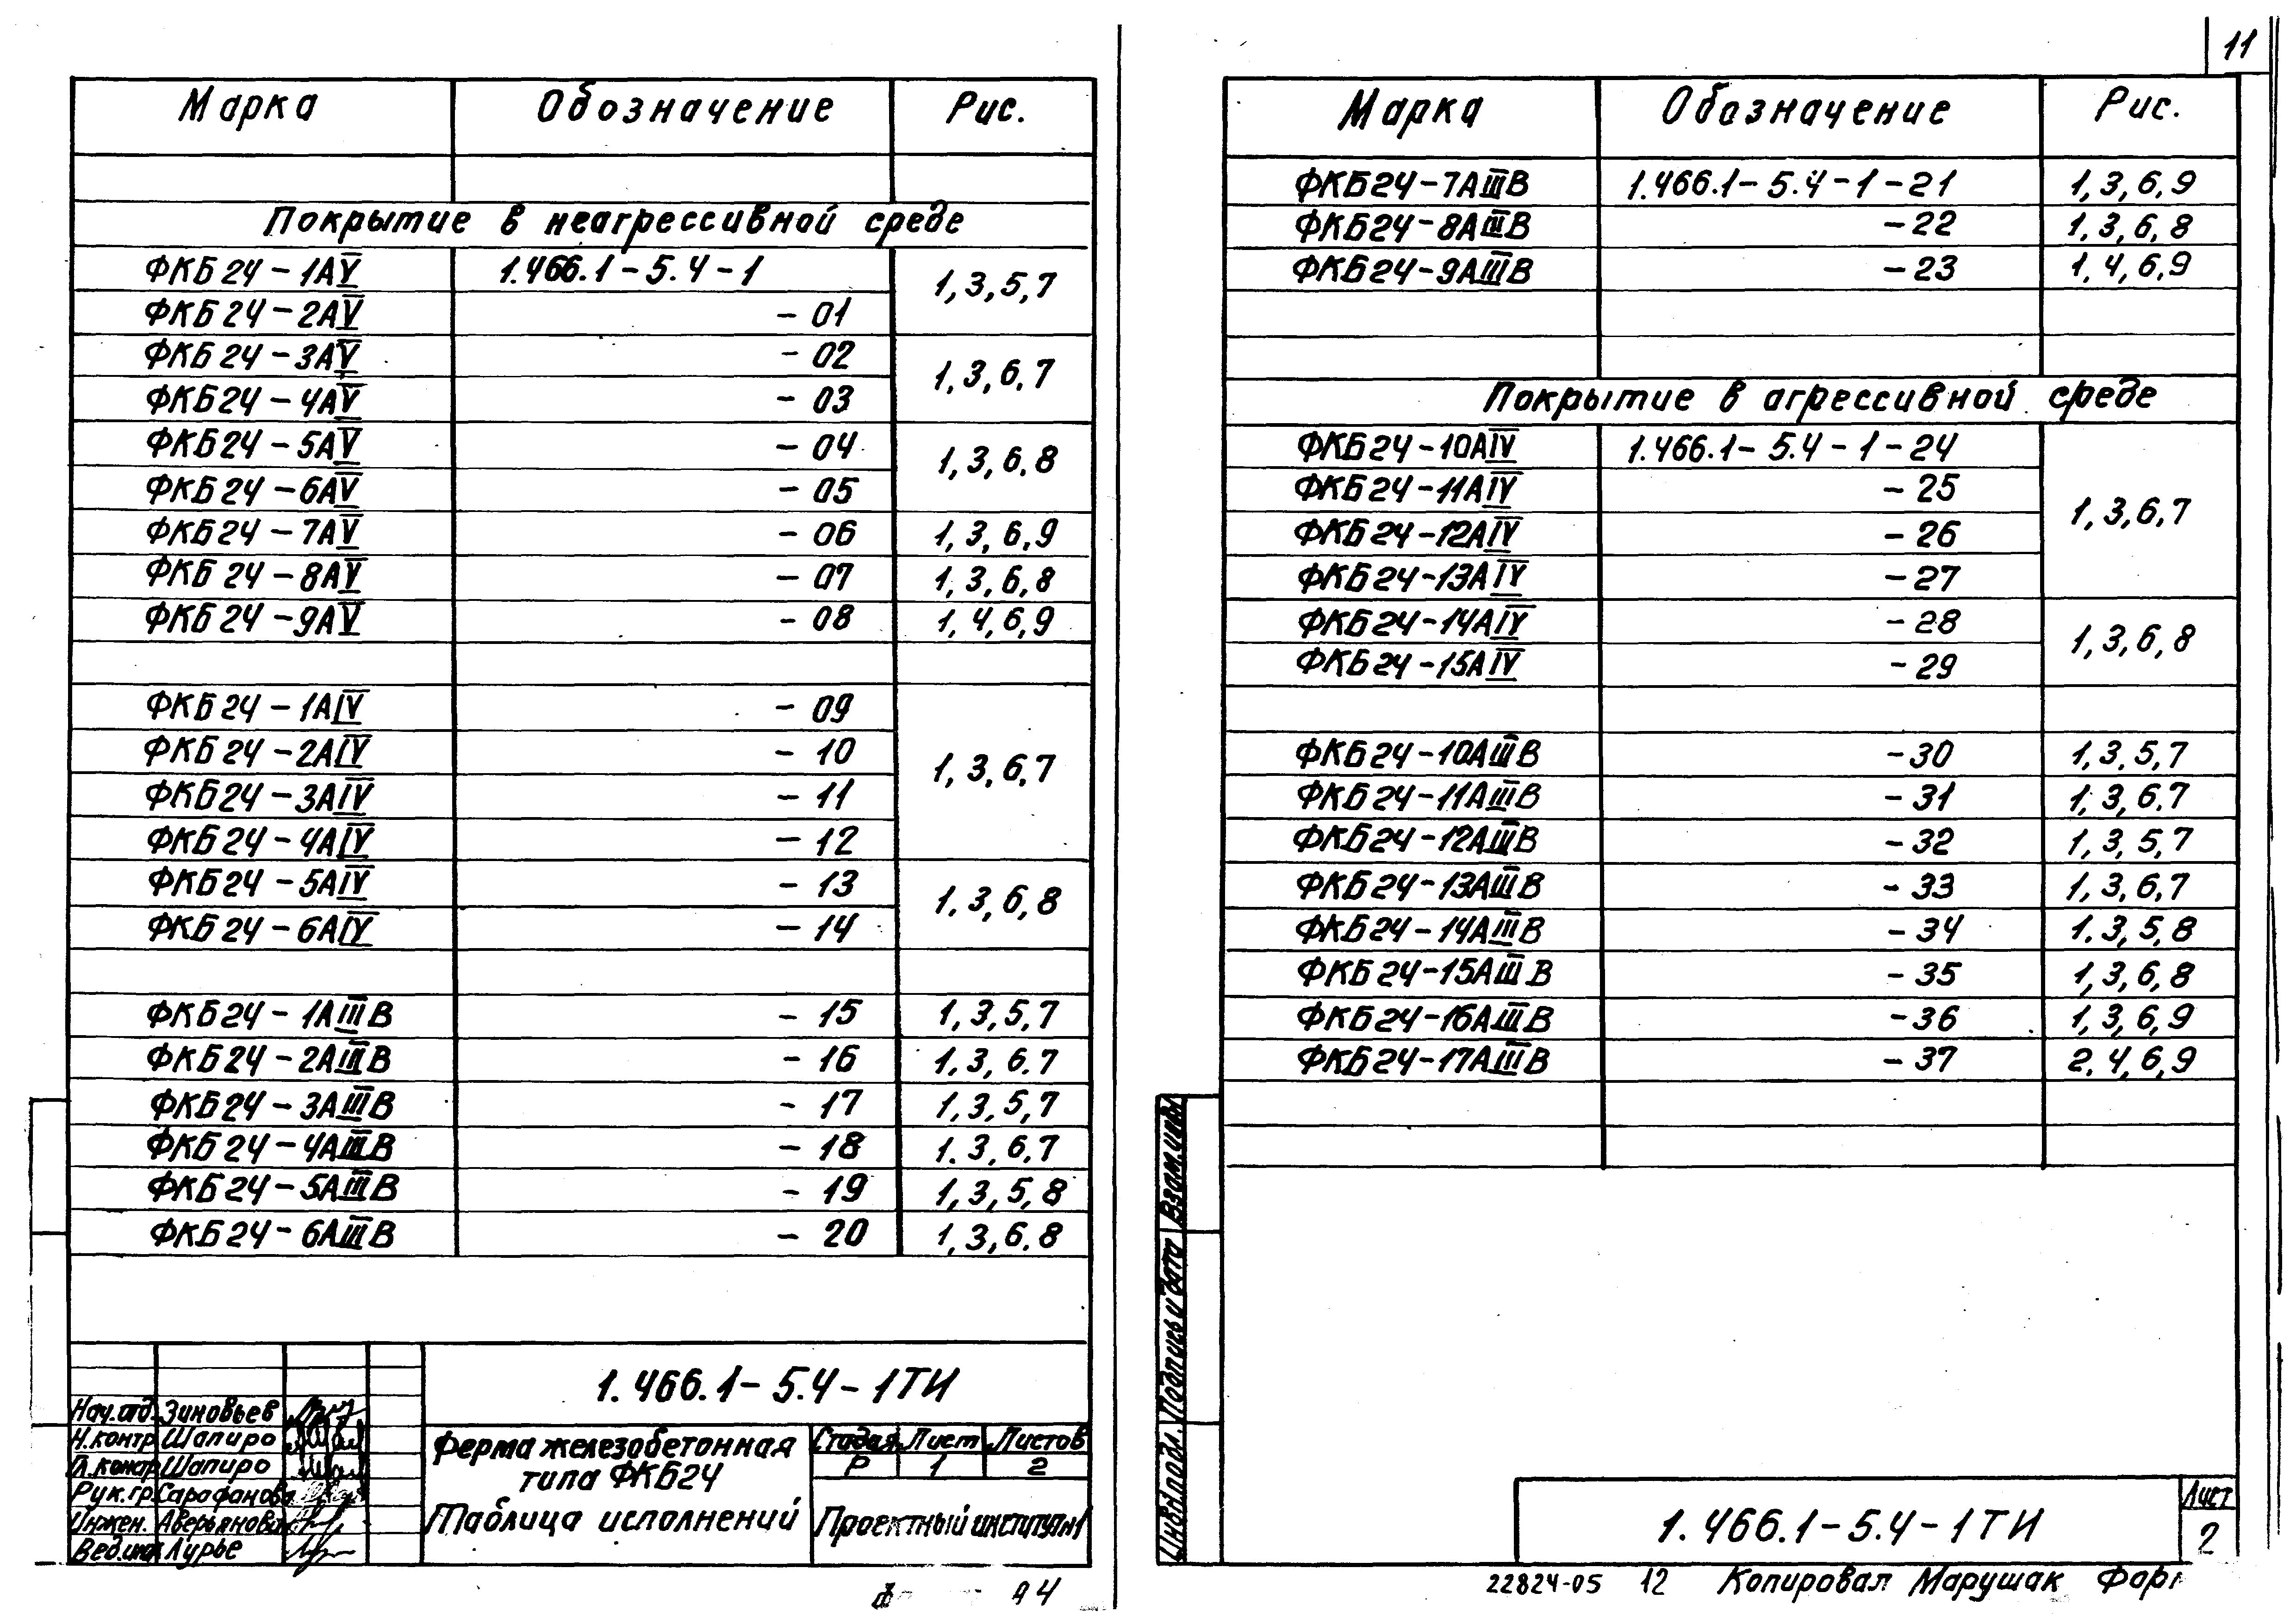 11
Марка Обозначение Рис.
Покрытие в неагрессивной среде
ФКБ24-1АV 1.466.1-5.4-1 1,3,5,7
ФКБ24-2АV -01
ФКБ24-3АV -02 1,3,6,7
ФКБ24-4АV -03
ФКБ24-5АV -04 1,3,6,8
ФКБ24-6АV -05
ФКБ24-7АV -06 1,3,6,9
ФКБ24-8АV -07 1,3,6,8
ФКБ24-9АV -08 1,4,6,9
ФКБ24-1АIV -09 1,3,6,7
ФКБ24-2АIV -10
ФКБ24-3АIV -11
ФКБ24-4АIV -12
ФКБ24-5АIV -13 1.3,6,8
ФКБ24-6АIV -14
ФКБ24-1АIIIВ -15 1,3,5,7
ФКБ24-2АIIIВ -16 1,3,6.7
ФКБ24-3АIIIВ -17 1,3,5,7
ФКБ24-4АIIIВ -18 1.3,6,7
ФКБ24-5АIIIВ -19 1,3,5,8
ФКБ24-6АIIIВ -20 1,3,6.8
1.466.1-5.4-1ТИ
Нач.отд. Зиновьев
Н.контр Шапиро
Гл.констр Шапиро
Рук.гр. Сарафанова
Инжен. Аверьянова
Вед.инж Лурье
Ферма железобетонная
типа ФКБ24
Таблица исполнений
Стадия Лист Листов
Р 1 2
Проектный институт №1
А4
Марка Обозначение Рис.
ФКБ24-7АIIIВ 1.466.1-5.4-1-21 1,3,6,9
ФКБ24-8АIIIВ -22 1,3,6,8
ФКБ24-9АIIIВ -23 1,4,6,9
Покрытие в агрессивной среде
ФКБ24-10АIV 1.466.1-5.4-1-24 1,3,6,7
ФКБ24-11АIV -25
ФКБ24-12АIV -26
ФКБ24-13АIV -27
ФКБ24-14АIV -28 1,3,6,8
ФКБ24-15АIV -29
ФКБ24-10АIIIВ -30 1,3,5,7
ФКБ24-11АIIIВ -31 1,3,6.7
ФКБ24-12АIIIВ -32 1,3,5,7
ФКБ24-13АIIIВ -33 1,3,6,7
ФКБ24-14АIIIВ -34 1.3,5,8
ФКБ24-15АIIIВ -35 1,3,6,8
ФКБ24-16АIIIВ -36 1,3,6,9
ФКБ24-17АIIIВ -37 2,4,6,9
Взам.инв
Подпись и дата
Инв.№подл.
1.466.1-5.4-1ТИ
Лист
2
22824-05 12 Копировал Марушак Фор